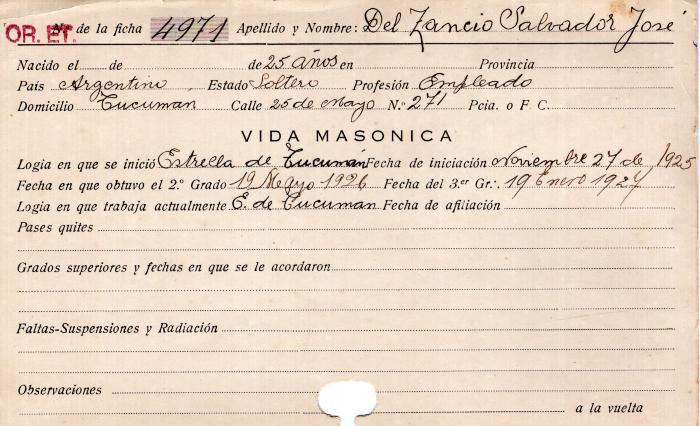 OR. ET. Nº de la ficha 4971 Apellido y Nombre: Del Zancio Salvador José
Nacido el de de 25 años en Provincia
País Argentino Estado Soltero Profesión Empleado
Domicilio Tucuman Calle 25 de Mayo N.º 271 Pcia. o F. C.
VIDA MASONICA
Logia en que se inició Estrella de Tucumán Fecha de iniciación Noviembre 27 de 1925
Fecha en que obtuvo el 2.º Grado 19 Mayo 1926 Fecha del 3.er Gr.·. 19 Enero 1927
Logia en que trabaja actualmente E. de Tucuman Fecha de afiliación
Pases quites
Grados superiores y fechas en que se le acordaron
Faltas-Suspensiones y Radiación
Observaciones
a la vuelta